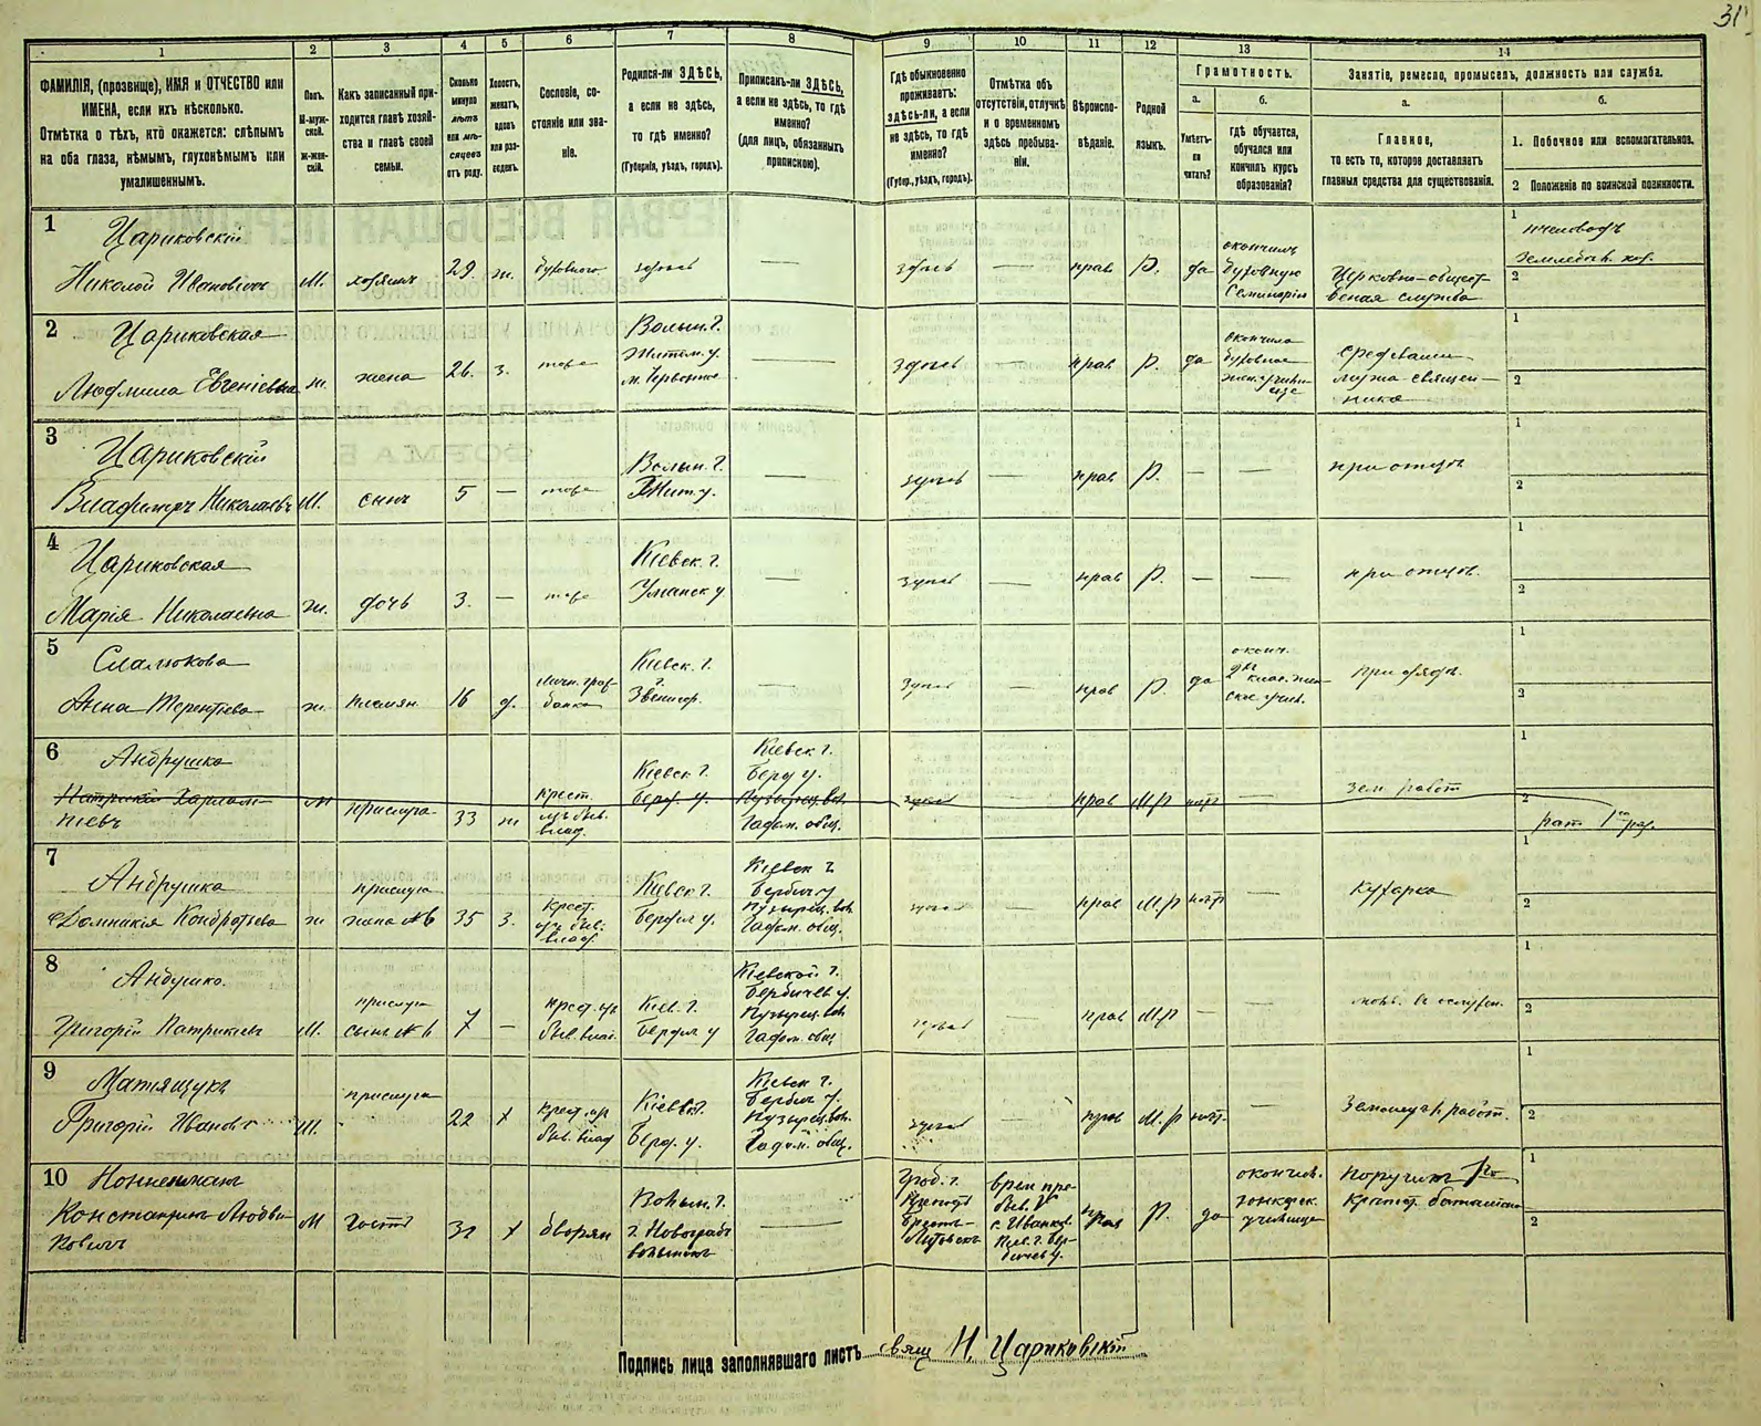 31
1 2 3 4 5 6 7 8 9 10 11 12 13 14
ФАМИЛІЯ, (прозвище), ИМЯ и ОТЧЕСТВО или
ИМЕНА, если ихъ нѣсколько.
Отмѣтка о тѣхъ, кто окажется: слѣпымъ
на оба глаза, нѣмымъ, глухонѣмымъ или
умалишеннымъ.
Полъ.
М-муж-
ской.
Ж-жен-
скій.
Какъ записанный при-
ходится главѣ хозяй-
ства и главѣ своей
семьи.
Сколько
минуло
лѣтъ
или мѣ-
сяцевъ
отъ роду.
Холостъ,
женатъ,
вдовъ
или раз-
веденъ.
Сословіе, со-
стояніе или зва-
ніе.
Родился-ли ЗДѢСЬ,
а если не здѣсь,
то гдѣ именно?
(Губернія, уѣздъ, городъ).
Приписанъ-ли ЗДѢСЬ,
а если не здѣсь, то гдѣ
именно?
(для лицъ, обязанныхъ
припискою).
Гдѣ обыкновенно
проживаетъ:
здѣсь-ли, а если
не здѣсь, то гдѣ
именно?
(Губер., уѣздъ, городъ).
Отмѣтка объ
отсутствіи, отлучкѣ
и о временномъ
здѣсь пребыва-
ніи.
Вѣроиспо-
вѣданіе.
Родной
языкъ.
Грамотность.
а.
Умѣетъ-
ли
читать?
б.
гдѣ обучается,
обучался или
кончилъ курсъ
образованія?
Занятіе, ремесло, промыселъ, должность или служба.
а.
Главное,
то есть то, которое доставляетъ
главныя средства для существованія.
б.
1. Побочное или вспомогательное.
2 Положеніе по воинской повинности.
1 Цариковскій
Николай Ивановичъ М. хозяинъ 29. ж. духовного здѣсь — здѣсь — прав Р. да
окончилъ
духовную
Семинарію
Церковно-общест-
веная служба
1 пчеловодъ
2
2 Цариковская
Людмила Евгеніевна ж. жена 26. з. тоже
Волын. г.
Житом. у.
— здѣсь — прав Р. да
окончила
духовное
средствами
мужа священ-
ника
1
2
3 Цариковскій
Владимиръ Николаевъ М. сынъ 5 — тоже
Волын. г.
Жит. у.
— здѣсь — прав Р. — — при отцѣ
1
2
4 Цариковская
Марія Николаевна ж. дочь 3. — тоже
Кіевск. г.
Уманск у
— здѣсь — прав Р. — — при отцѣ.
1
2
5
Анна Терентьева ж. племян. 16 д.
Кіевск. г.
Звенигор.
— здѣсь — прав Р. да
оконч.
при дядѣ.
1
2
6 Андрушко
М прислуга 33 ж
крест.
изъ быв.
влад.
Кіевск г.
Берд. у.
Кіевск г.
Берд у.
Пузырец. вол.
общ.
здѣсь — прав М.р нѣтъ — зем работ
1
2 рат. 1го раз.
7 Андрушко
Домникія Кондратьева ж
прислуга
жена №6
35 з.
крест.
изъ быв.
влад.
Кіевск г.
Бердич у.
Кіевск г.
Бердич у
Пузырец. вол.
общ.
здѣсь — прав М.р нѣтъ — кухарка
1
2
8
Григорій Патрикіевъ М.
прислуга
сынъ №6
7 —
крест. изъ
быв. влад.
Кіев. г.
Бердич у
Кіевской г.
Бердичев у.
Пузырец. вол
общ
здѣсь — прав М.р — —
1
2
9 Матящукъ
Григорій Ивановъ М.
прислуга
22 х
крест. изъ
быв. влад
Кіевск г.
Берд. у.
Кіевск г.
Бердич у.
Пузырец. вол.
общ.
здѣсь — прав М.р нѣтъ. — работ.
1
2
10
Константинъ М гость х дворян
Волын. г.
г. Новоград
волынск
— Грод. г.
Брестъ-
Литовскъ
врем пре-
быв. в
с. Иванков
Кіев. г. Бер-
дичев у.
прав Р. да
окончив.
юнкерск.
училище
поручикъ 1го
Крепост. баталіона
1
2
Подпись лица заполнявшаго листъ свящ Н. Цариковскій